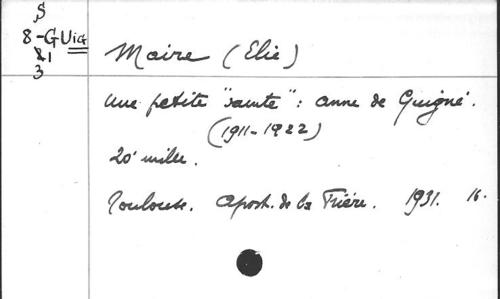 S
8-GUiG
21
3
Maire (Elie)
une petite "sainte" : anne de Guigné.
(1911-1922)
20' mille.
Toulouse. Apost. de la Prière. 1931. 16.